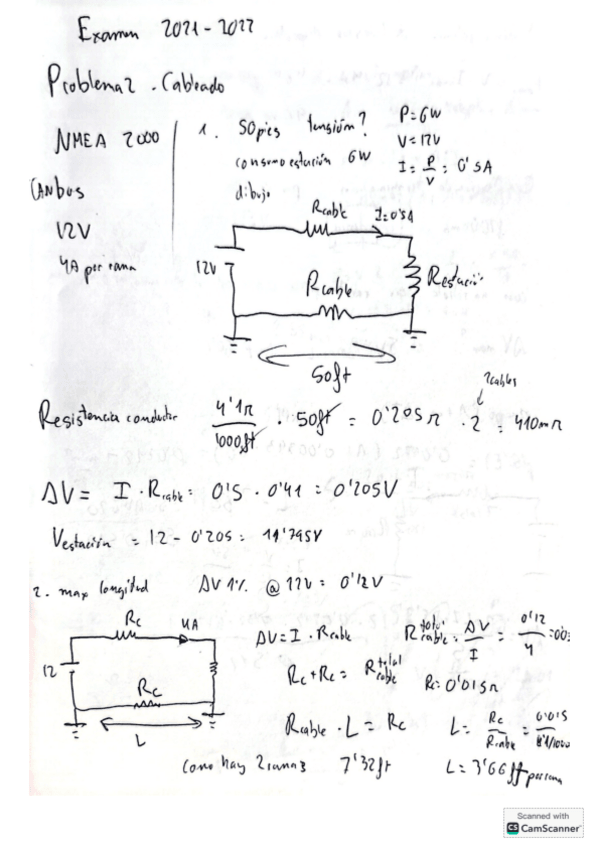 Examen 2021-2022
Problema 2. Cableado
NMEA 2000
CANbus
12V
4A por rama
1. 50 pies tensión?
consumo estación 6W
dibujo
P=6W
V=12V
I= P/V = 0'5A
Rcable I=0'5A
12V
Rcable
Restación
50ft
2cables
Resistencia conductor 4'1Ω/1000ft · 50ft = 0'205Ω · 2 = 410mΩ
ΔV = I · Rcable = 0'5 · 0'41 = 0'205V
Vestación = 12 - 0'205 = 11'795V
2. max longitud ΔV 1% @ 12V = 0'12V
Rc 4A
12
Rc
L
ΔV = I · Rcable
Rc + Rc = R total cable
R total cable = ΔV/I = 0'12/4
Rc = 0'015Ω
Rcable · L = Rc
L = Rc/Rcable = 0'015
Como hay 2 ramas 7'32ft
L = 3'66ft por rama
Scanned with
CS CamScanner